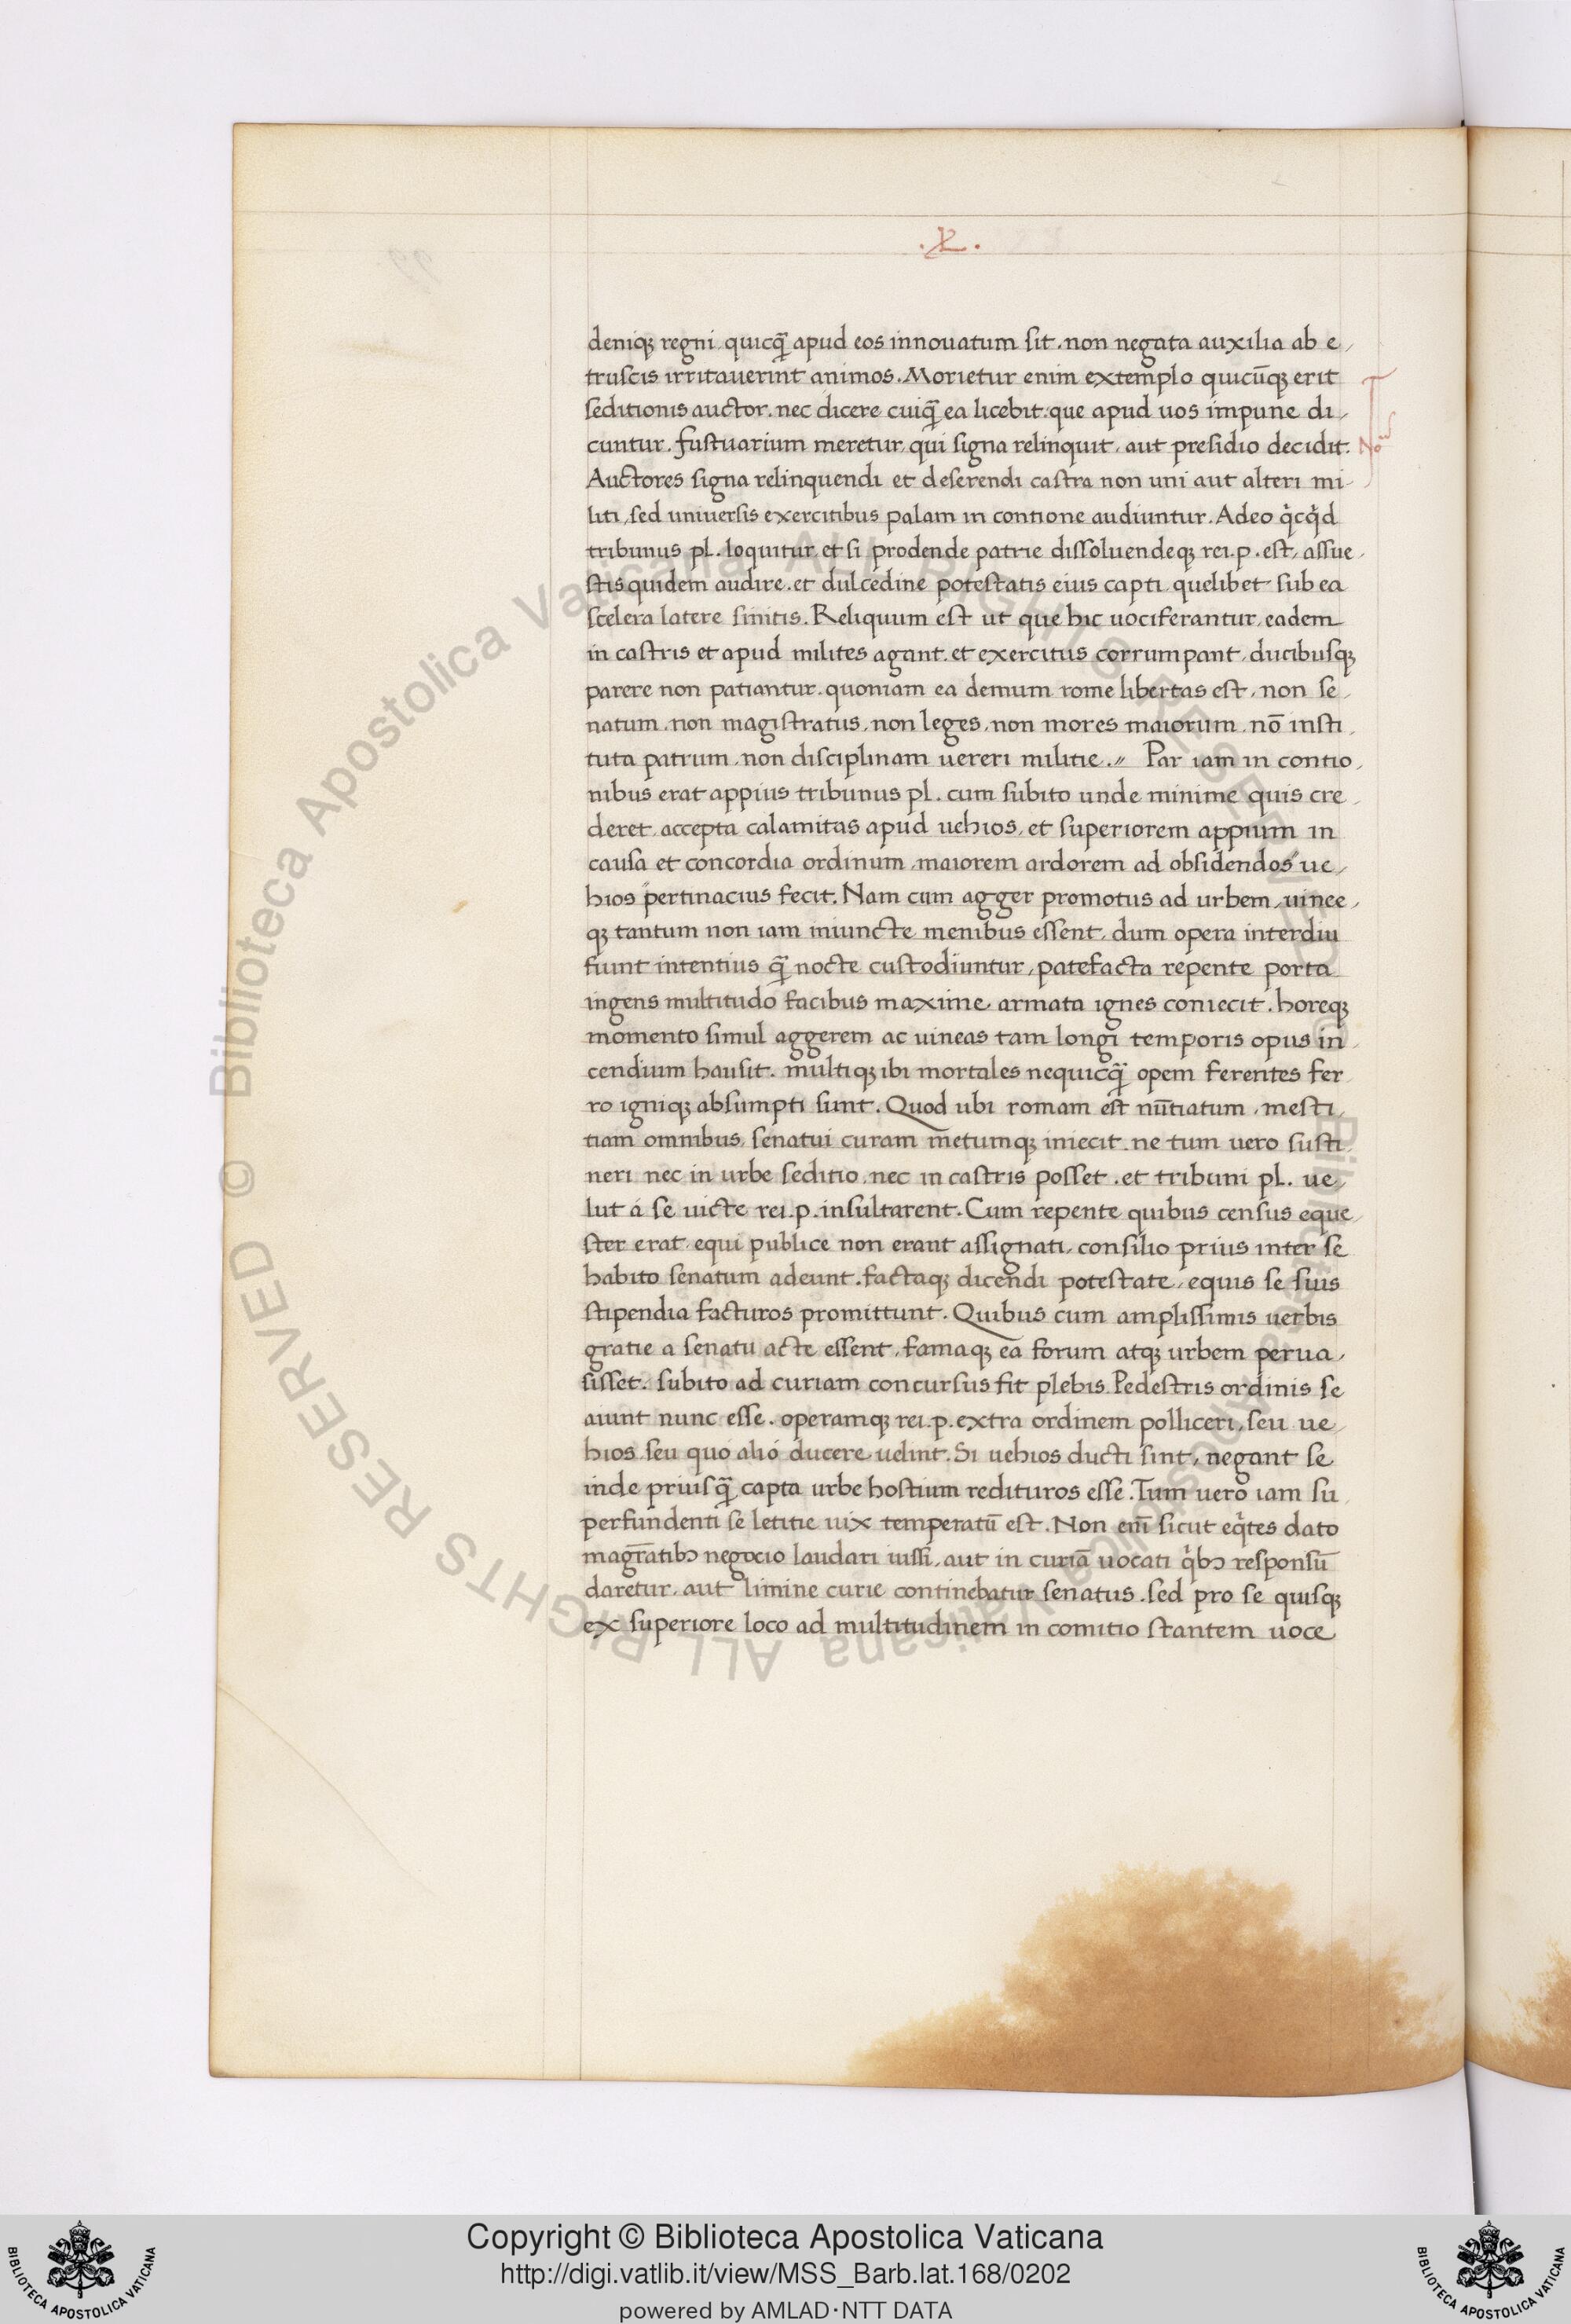 .X.
deniqꝫ regni quicq̃ apud eos innouatum sit. non negata auxilia ab e,
truscis irritauerint animos. Morietur enim extemplo quicūqꝫ erit
seditionis auctor. nec dicere cuiq̃ ea licebit. que apud uos impune di,
cuntur. fustuarium meretur, qui signa relinquit, aut presidio decidit.
No
Auctores signa relinquendi et deserendi castra non uni aut alteri mi,
liti, sed uniuersis exercitibus palam in contione audiuntur. Adeo q̇cq̇d
tribunus pl. loquitur et si prodende patrie dissoluendeqꝫ rei.p. est, assue,
stis quidem audire. et dulcedine potestatis eius capti quelibet sub ea
scelera latere sinitis. Reliquum est ut que hic uociferantur, eadem
in castris et apud milites agant. et exercitus corrumpant, ducibusqꝫ
parere non patiantur. quoniam ea demum rome libertas est, non se,
natum, non magistratus, non leges, non mores maiorum, nō insti,
tuta patrum, non disciplinam uereri militie.,, Par iam in contio,
nibus erat appius tribunus pl. cum subito unde minime quis cre,
deret, accepta calamitas apud uehios, et superiorem appium in
causa et concordia ordinum, maiorem ardorem ad obsidendos ue,
hios pertinacius fecit. Nam cum agger promotus ad urbem, uinee,
qꝫ tantum non iam iniuncte menibus essent, dum opera interdiu
fiunt intentius q̃ nocte custodiuntur, patefacta repente porta
ingens multitudo facibus maxime armata ignes coniecit. horeqꝫ
momento simul aggerem ac uineas tam longi temporis opus in,
cendium hausit. multiqꝫ ibi mortales nequicq̃ opem ferentes fer
ro igniqꝫ absumpti sunt. Quod ubi romam est nūtiatum, mesti,
tiam omnibus, senatui curam metumqꝫ iniecit. ne tum uero susti,
neri nec in urbe seditio, nec in castris posset. et tribuni pl. ue,
lut a se uicte rei.p. insultarent. Cum repente quibus census eque,
ster erat equi publice non erant assignati, consilio prius inter se
habito senatum adeunt. factaqꝫ dicendi potestate, equis se suis
stipendia facturos promittunt. Quibus cum amplissimis uerbis
gratie a senatu acte essent, famaqꝫ ea forum atqꝫ urbem perua,
sisset. subito ad curiam concursus fit plebis. Pedestris ordinis se
aiunt nunc esse. operamqꝫ rei.p. extra ordinem polliceri, seu ue,
hios seu quo alio ducere uelint. Si uehios ducti sint, negant se
inde priusq̃ capta urbe hostium redituros esse. Tum uero iam su,
perfundenti se letitie uix temperatū est. Non em̄ sicut eq̇tes dato
magr̄atibꝫ negocio laudari iussi, aut in curiā uocati q̇bꝫ responsū
daretur, aut limine curie continebatur senatus. sed pro se quisqꝫ
ex superiore loco ad multitudinem in comitio stantem uoce
© Biblioteca Apostolica Vaticana ALL RIGHTS RESERVED
© Biblioteca Apostolica Vaticana ALL RIGHTS RESERVED
Copyright © Biblioteca Apostolica Vaticana
http://digi.vatlib.it/view/MSS_Barb.lat.168/0202
powered by AMLAD·NTT DATA
BIBLIOTECA APOSTOLICA VATICANA
BIBLIOTECA APOSTOLICA VATICANA